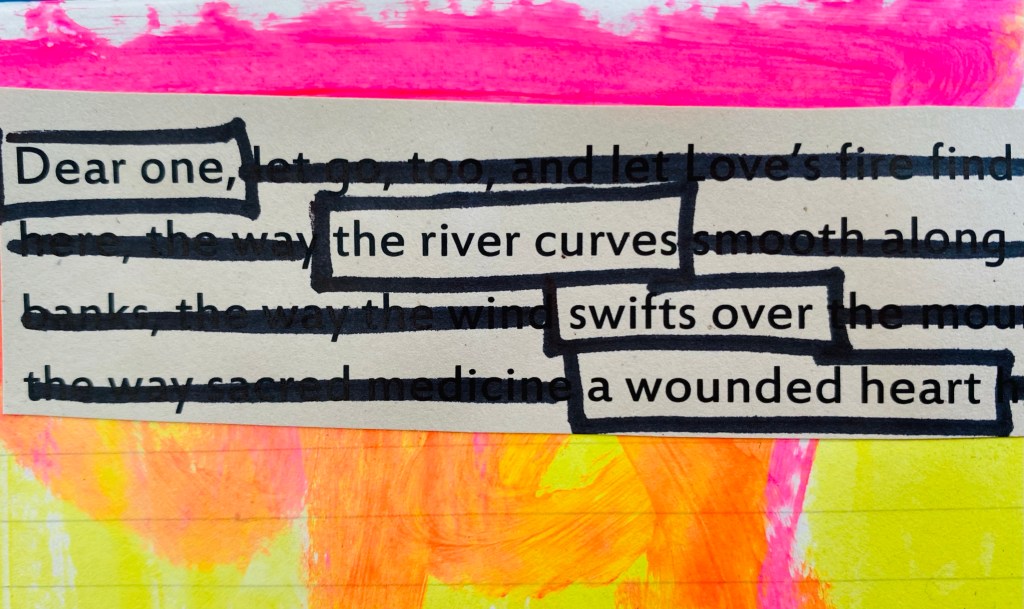 Dear one, let go, too, and let Love's fire find
here, the way the river curves smooth along
banks, the way the wind swifts over the mou
the way sacred medicine a wounded heart h